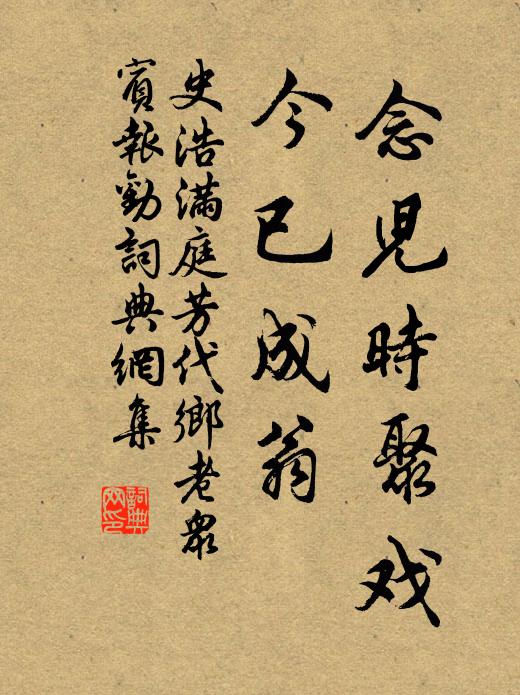 念兒時聚戏
今已成翁
史浩满庭芳代鄉老眾
賓報勸詞典網集
詞典
网印